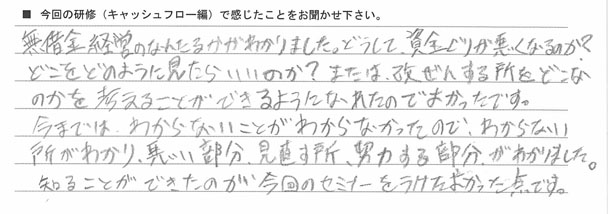 ■ 今回の研修（キャッシュフロー編）で感じたことをお聞かせ下さい。
無借金経営のなんたるかがわかりました。どうして、資金ぐりが悪くなるのか？
どこをどのように見たらいいのか？または、改ぜんする所をどこな
のかを考えることができるようになれたのでよかったです。
今までは、わからないことがわからなかったので、わからない
所がわかり、悪い部分、見直す所、努力する部分、がわかりました。
知ることができたのが今回のセミナーをうけてよかった点です。